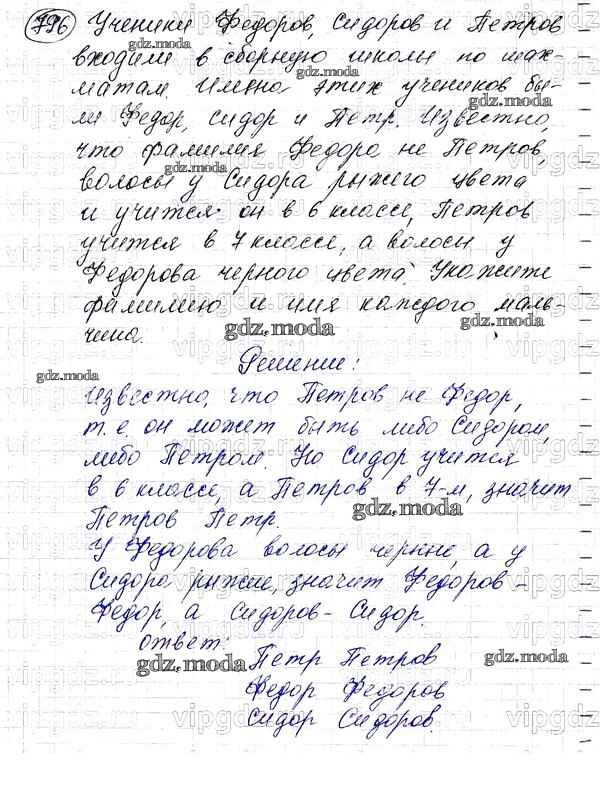 796 Ученики Федоров, Сидоров и Петров
входили в сборную школы по шах-
матам. Имена этих учеников бы-
ли Федор, Сидор и Петр. Известно,
что фамилия Федора не Петров,
волосы у Сидора рыжего цвета
и учится он в 6 классе, Петров
учится в 7 классе, а волосы у
Федорова черного цвета. Укажите
фамилию и имя каждого маль-
чика.
Решение:
Известно, что Петров не Федор,
т.е. он может быть либо Сидором,
либо Петром. Но Сидор учится
в 6 классе, а Петров в 7-м, значит
Петров Петр.
У Федорова волосы черные, а у
Сидора рыжие, значит Федоров -
Федор, а Сидоров - Сидор.
Ответ:
Петр Петров
Федор Федоров
Сидор Сидоров.
gdz.moda
gdz.moda
gdz.moda
gdz.moda
gdz.moda
gdz.moda
gdz.moda
gdz.moda
gdz.moda
gdz.moda
gdz.moda
gdz.moda